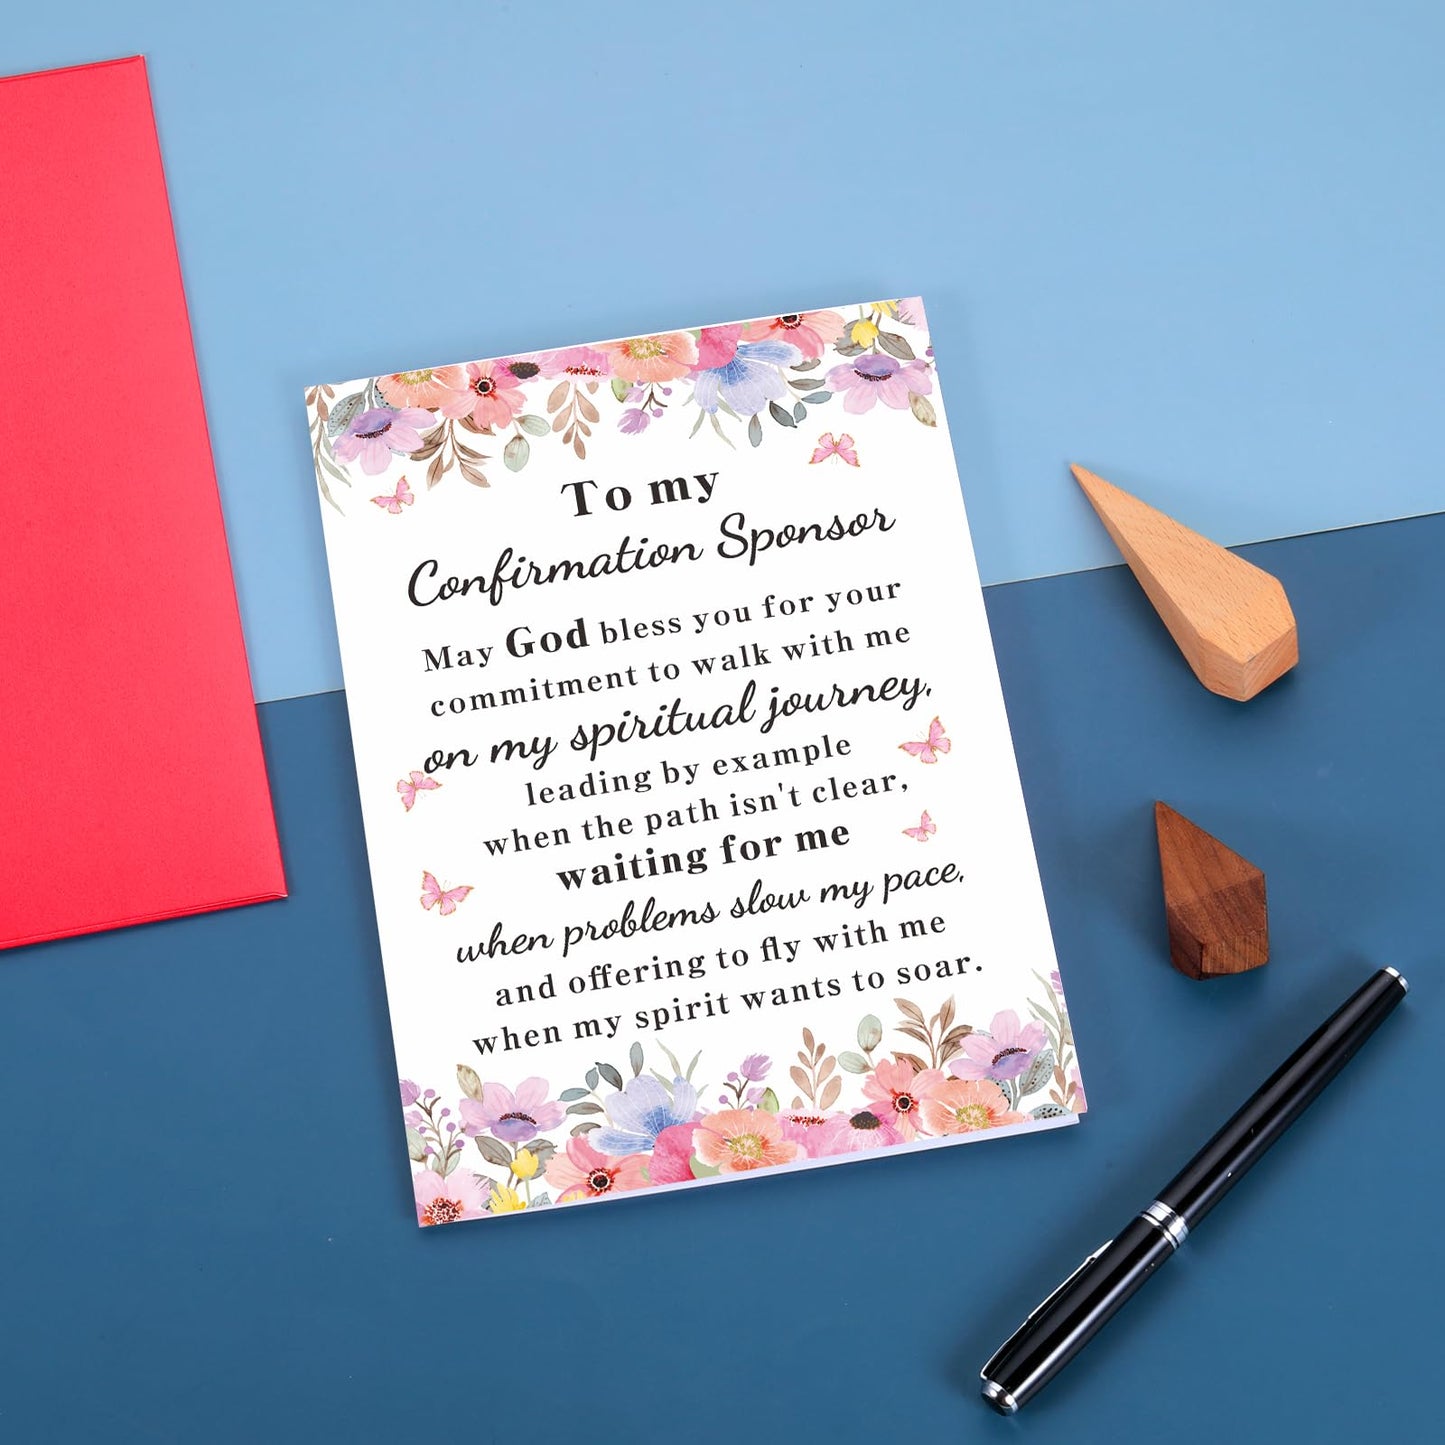 To my
Confirmation Sponsor
May God bless you for your
commitment to walk with me
on my spiritual journey,
leading by example
when the path isn't clear,
waiting for me
when problems slow my pace,
and offering to fly with me
when my spirit wants to soar.